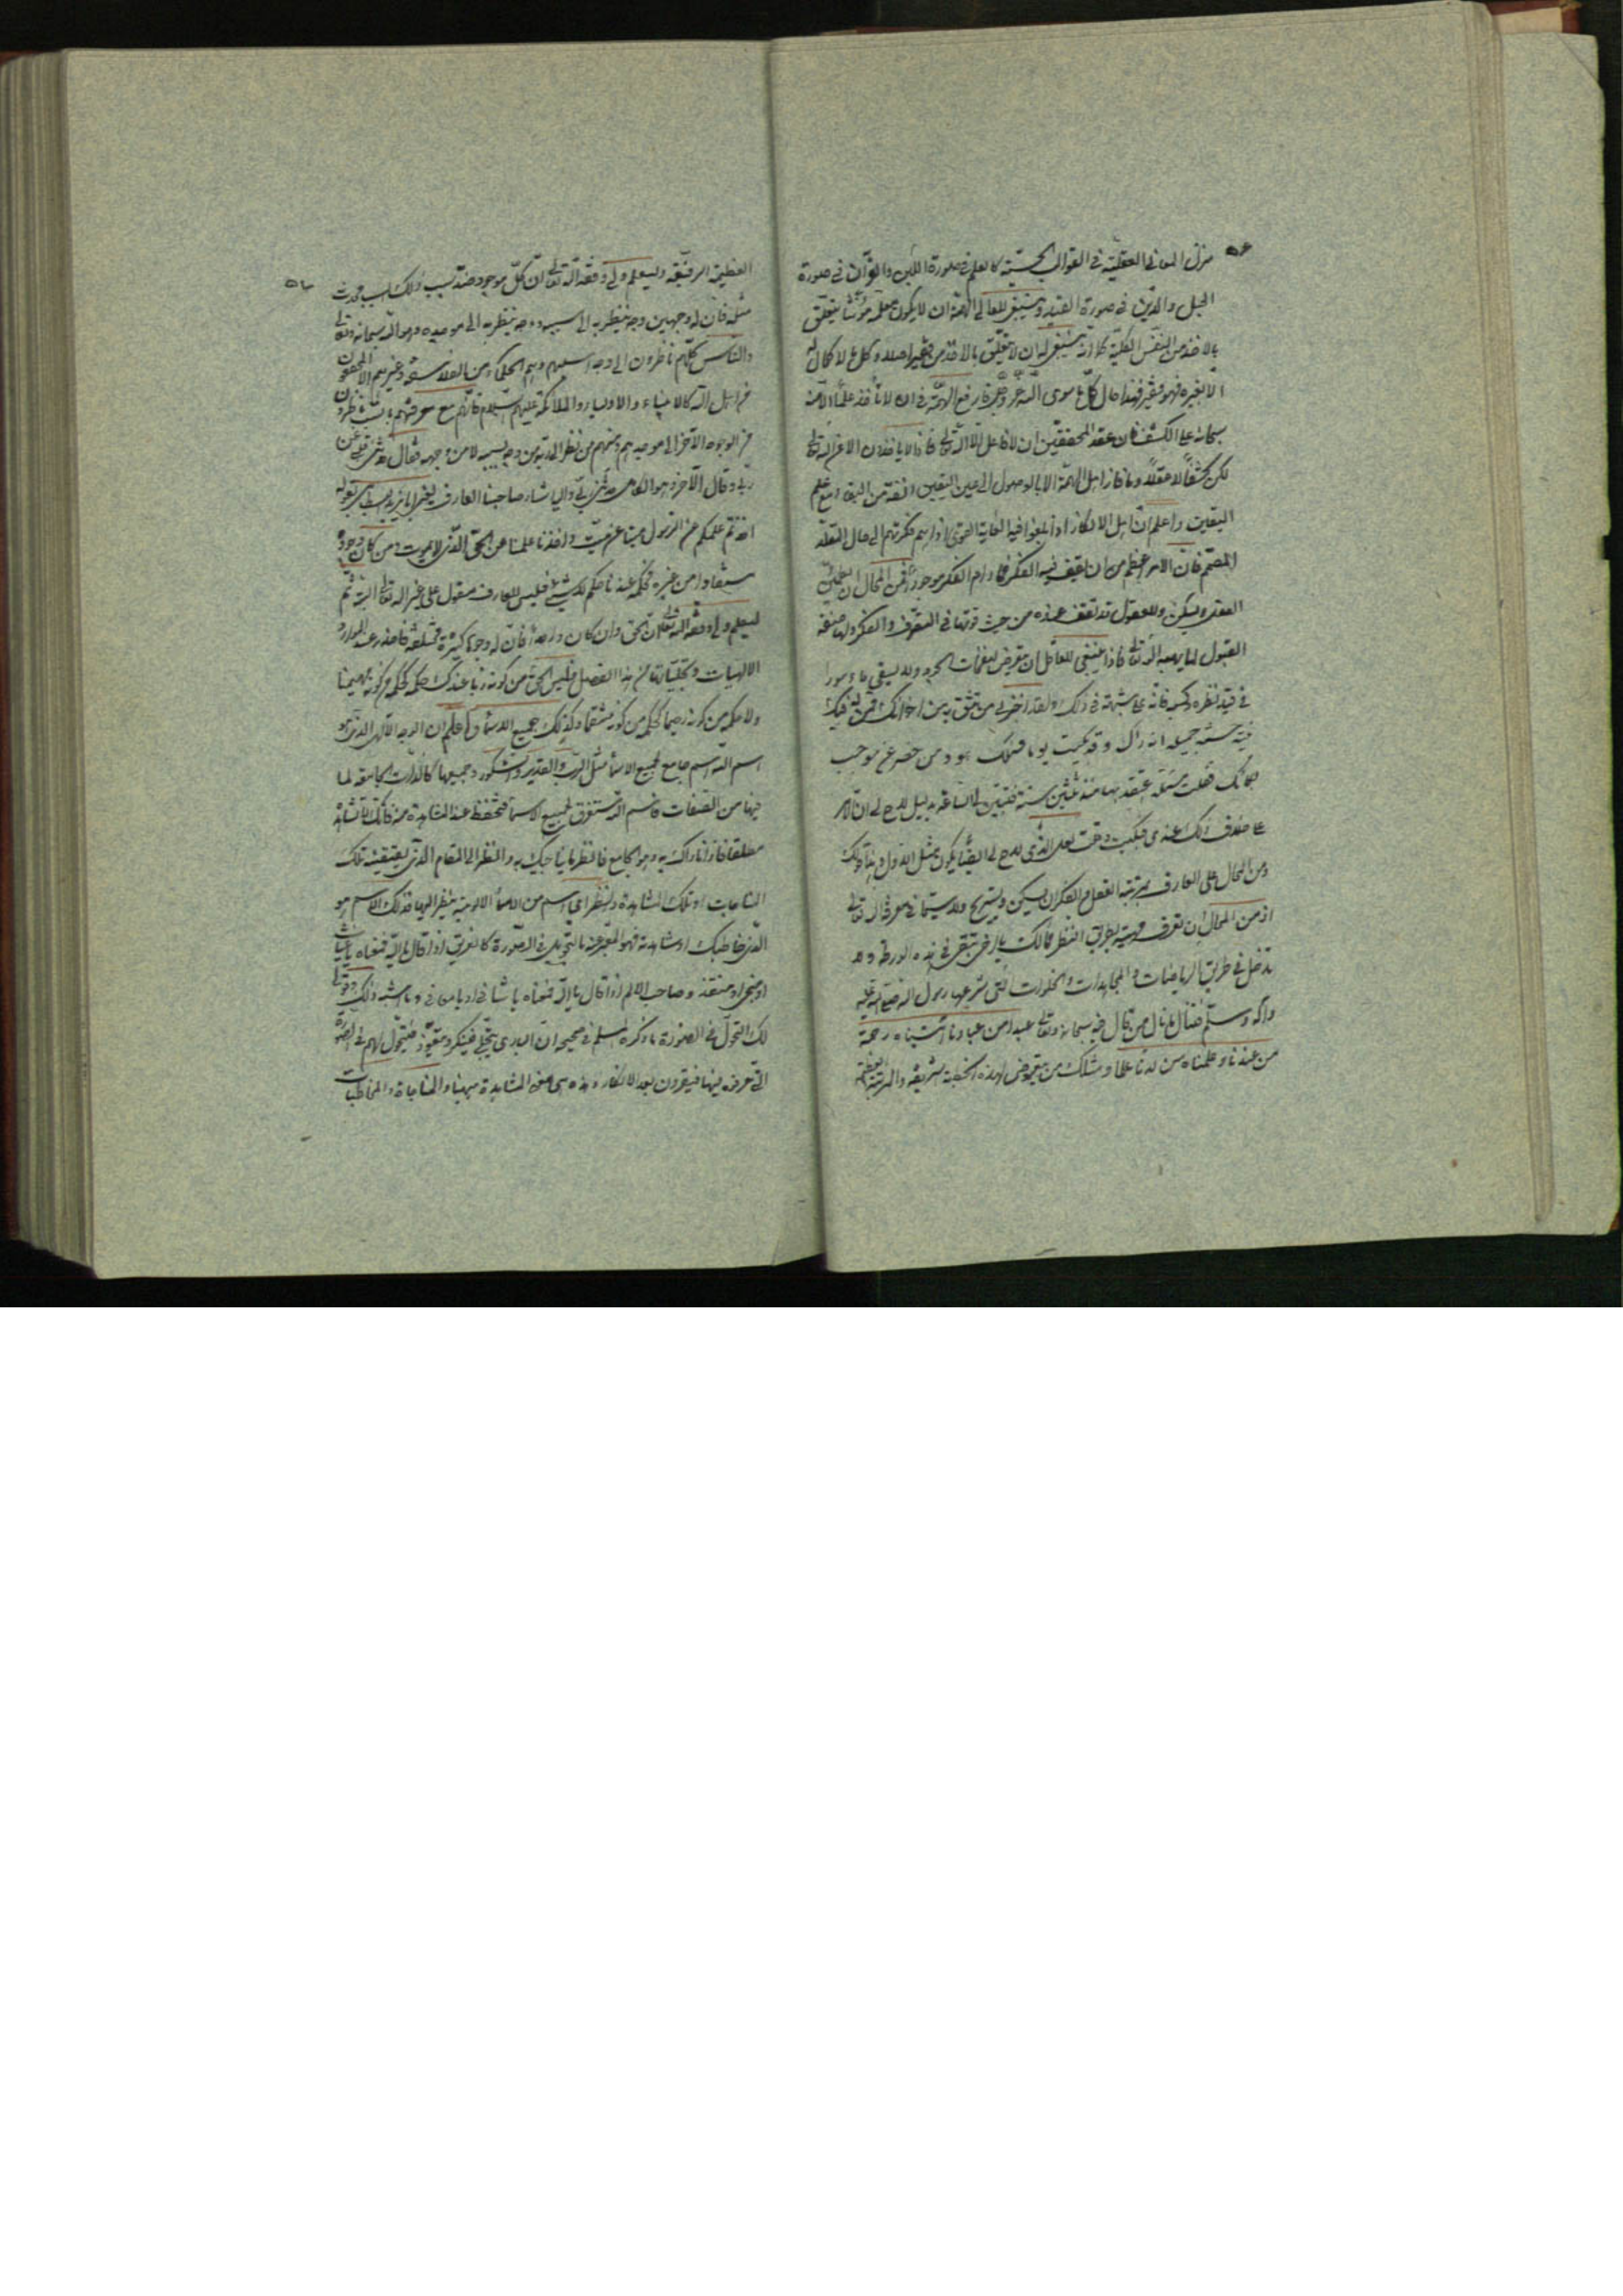 ٥٤
منزل المعاني العقلية في القوالب الحسية كالعلم في صورة اللبن والقرآن في صورة
الحبل والدين في صورة القيد وينبغي للعالي الهمة ان لا يكون معلمه مؤنثا يتعلق
بالاخذ من النفس الكلية كما انه ينبغي له ان لا يتعلق بالاخذ من فقير اصلا وكل ما لا كمال له
الا بغيره فهو فقير فهذا حال كل ما سوى الله عز وجل فارفع الهمة في ان لا تأخذ علما الا منه
سبحانه على الكشف فان عند المحققين ان لا فاعل الا الله تعالى فاذا لا ياخذون الا عن الله تعالى
لكن كشفا لا عقلا وما فاز اهل الهمة الا بالوصول الى عين اليقين انفة من البقاء مع علم
اليقين واعلم ان اهل الافكار اذا بلغوا فيه الغاية القصوى اداهم فكرهم الى حال المقلد
المصمم فان الامر اعظم من ان يقف فيه الفكر فما دام الفكر موجودا فمن المحال ان يطمئن
العقل ويسكن وللعقول حد تقف عنده من حيث قوتها في التصرف والفكر ولها صفة
القبول لما يهبه الله تعالى فاذا ينبغي للعاقل ان يتعرض لنفحات الجود ولا يبقى ماسورا
في قيد نظره وكسبه فانه على شبهة في ذلك ولقد اخبرني من اثق به من اخوانك وممن له فيك
نية حسنة جميلة انه رآك وقد بكيت يوما فسألك هو ومن حضر عن موجب
بكائك فقلت مسئلة اعتقدها منذ ثلثين سنة فتبين لي الساعة بدليل لاح لي ان الامر
على خلاف ذلك عندي فبكيت وقلت لعل الذي لاح لي ايضا يكون مثل الاول وهذا قولك
ومن المحال على العارف بمرتبة العقل والفكر ان يسكن ويستريح ولا سيما في معرفة الله تعالى
اذ من المحال ان تعرف مهيته بطريق النظر فمالك يا اخي تبقى في هذه الورطة ولا
تدخل في طريق الرياضات والمجاهدات والخلوات التي شرعها رسول الله صلى الله عليه
وآله وسلم فتنال ما نال من قال فيه سبحانه وتعالى عبدا من عبادنا آتيناه رحمة
من عندنا وعلمناه من لدنا علما ومثلك من يتعرض لهذه الخطبة الشريفة والمرتبة العظيمة
العظيمة الرفيعة وليعلم وليي وفقه الله تعالى ان كل موجود عند سبب ذلك السبب محدث
مثله فان له وجهين وجه ينظر به الى سببه ووجه ينظر به الى موجده وهو الله سبحانه وتعالى
والناس كلهم ناظرون الى وجه اسبابهم وهم الحكماء من الفلاسفة وغيرهم الا المحققون
من اهل الله كالانبياء والاولياء والملائكة عليهم السلام فانهم مع معرفتهم بالسبب ناظرون
من الوجوه الآخر الى موجدهم ومنهم من نظر الى ربه من وجه سببه لا من وجهه فقال حدثني قلبي عن
ربي وقال الآخر وهو الكامل حدثني ربي واليه اشار صاحبنا العارف يعني ابا يزيد بسطامي بقوله
اخذتم علمكم عن الرسول ميتا عن ميت واخذنا علمنا عن الحي الذي لا يموت ومن كان وجوده
مستفادا من غيره فحكمه عندنا حكم لا شيء فليس للعارف معول على غير الله تعالى البتة ثم
ليعلم وليي وفقه الله تعالى ان الحق وان كان واحدا فان له وجوها كثيرة مختلفة فاحذر عند الموارد
الالهيات وتجلياتها من هذا الفصل فليس الحق من كونه ربا عندك حكمه كحكمه من كونه مهيمنا
ولا حكمه من كونه رحيما كحكمه من كونه منتقما وكذلك جميع الاسماء واعلم ان الوجه الالهي الذي هو
اسم الله اسم جامع لجميع الاسماء مثل الرب والقدير والشكور وجميعها كالذات الجامعة لما
فيها من الصفات فاسم الله مستغرق لجميع الاسماء فتحفظ عند المشاهدة منه فانك لا تشاهده
مطلقا فاذا ناداك به وهو الجامع فانظر ما يناجيك به وانظر الى المقام الذي يقتضيه تلك
المناجات او تلك المشاهدة وانظر اي اسم من الاسماء الالهية ينظر اليها فذلك الاسم هو
الذي خاطبك او شاهدته فهو المعبر عنه بالتحول في الصورة كالغريق اذا قال يا الله فمعناه يا غياث
او منجي او منقذ وصاحب الالم اذا قال يا الله فمعناه يا شافي او يا معافي وما اشبه ذلك وقولي
لك التحول في الصورة ما ذكره مسلم في صحيحه ان الباري يتجلى فينكر ويتعوذ فيتحول لهم في الصورة
التي عرفوه فيها فيقرون بعد الانكار وهذه هي معنى المشاهدة ههنا والمناجاة والمخاطبات